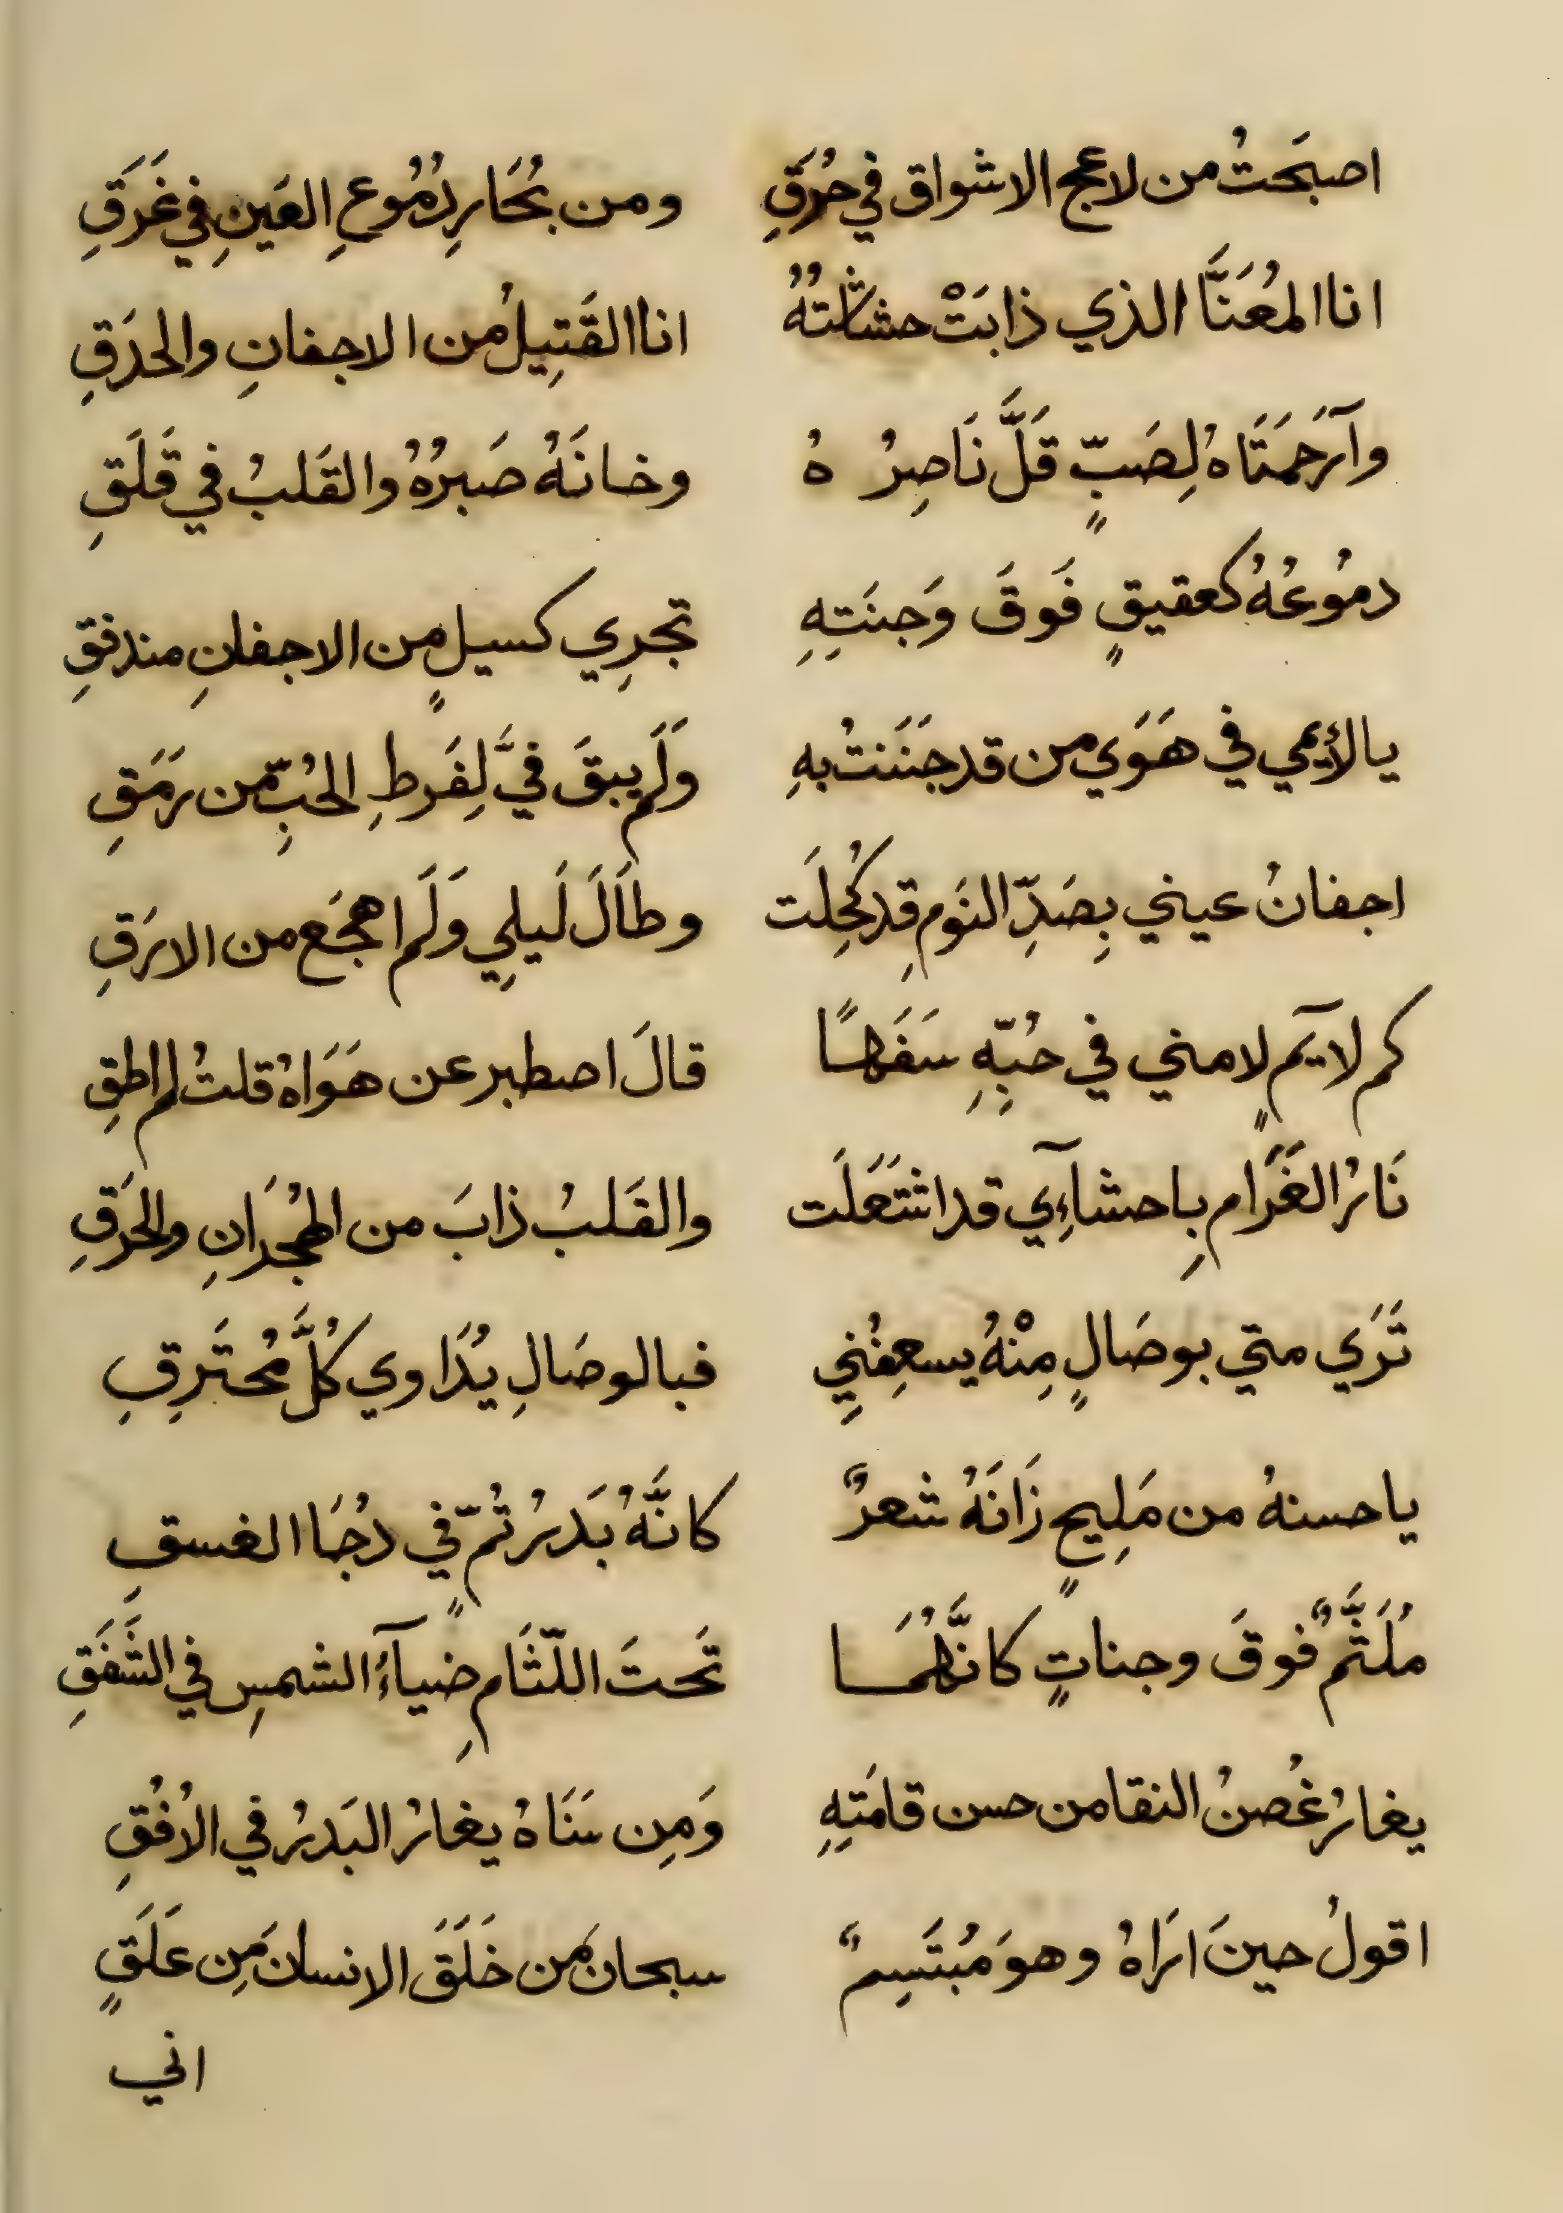 اصبَحتُ من لاعج الاشواق في حُرَقِ ومن بُحَارِ دُمُوعِ العَينِ في غَرَقِ
انا المُعَنَّا الذي ذابَتْ حشاشتُهُ انا القَتِيلُ من الاجفانِ والحدَقِ
وآرَحمَتَاهُ لِصَبٍّ قَلَّ نَاصِرُهُ وخانَهُ صَبرُهُ والقَلبُ في قَلَقِ
دمُوعُهُ كعقيقٍ فَوقَ وَجنَتِهِ تجرِي كسيلٍ من الاجفانِ مندفقِ
يا لأيمي في هَوَي من قد جَنَنتُ بهِ وَلَم يبقَ فيَّ لِفَرطِ الحُبِّ من رَمَقِ
اجفانُ عيني بِصَدِّ النَومِ قد كُحِلَت وطَالَ لَيلِي وَلَم اهجَع من الارَقِ
كم لآيمٍ لامني في حُبِّهِ سَفَهًا قالَ اصطبر عن هَوَاهُ قلتُ لم اطقِ
نَارُ الغَرَامِ بِاحشآءِي قد اشتَعَلَت والقَلبُ ذابَ من الهُجرَانِ والحَرَقِ
تَرَي متي بوصَالٍ مِنْهُ يسعِفُنِي فبالوصَالِ يُدَاوي كُلَّ مُحتَرِقِ
يا حسنهُ من مَلِيحٍ زَانَهُ شعرٌ كانَّهُ بَدرُ تُمٍّ في دُجَا الغسقِ
مُلَثَّمٌ فوقَ وجناتٍ كانَّهُمَا تَحتَ اللّثَامِ ضيآءُ الشمسِ في الشَّفَقِ
يغارُ غُصنُ النقا من حسن قامَتِهِ وَمِن سَنَاهُ يغارُ البَدرُ في الاُفُقِ
اقولُ حينَ ارَاهُ وهوَ مُبتَسِمٌ سبحانَ من خَلَقَ الانسانَ مِن عَلَقٍ
اني